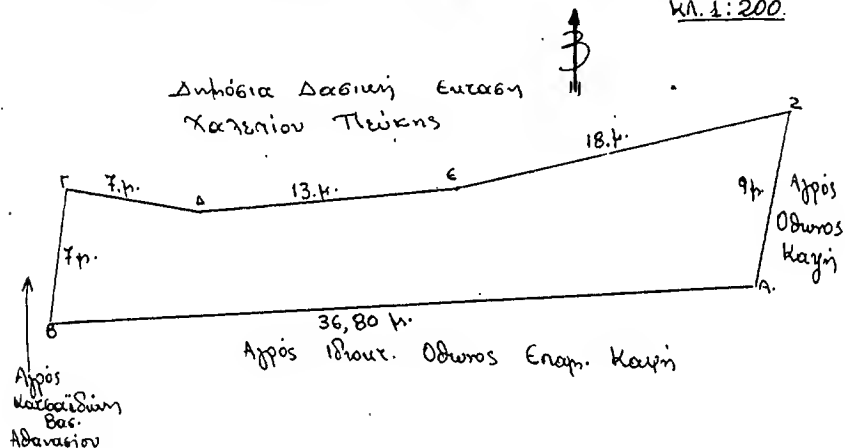 κλ. 1:200.
Β
Δημόσια Δασική έκταση
Χαλεπίου Πεύκης
Γ
7.μ.
Δ
13.μ.
Ε
18.μ.
Ζ
7μ.
9μ.
Αγρός
Οθωνος
Καψή
Β
36,80 μ.
Α.
Αγρός Ιδιοκτ. Οθωνος Επαμ. Καψή
Αγρός
Κατσαϊδώνη
Βασ.
Αθανασίου